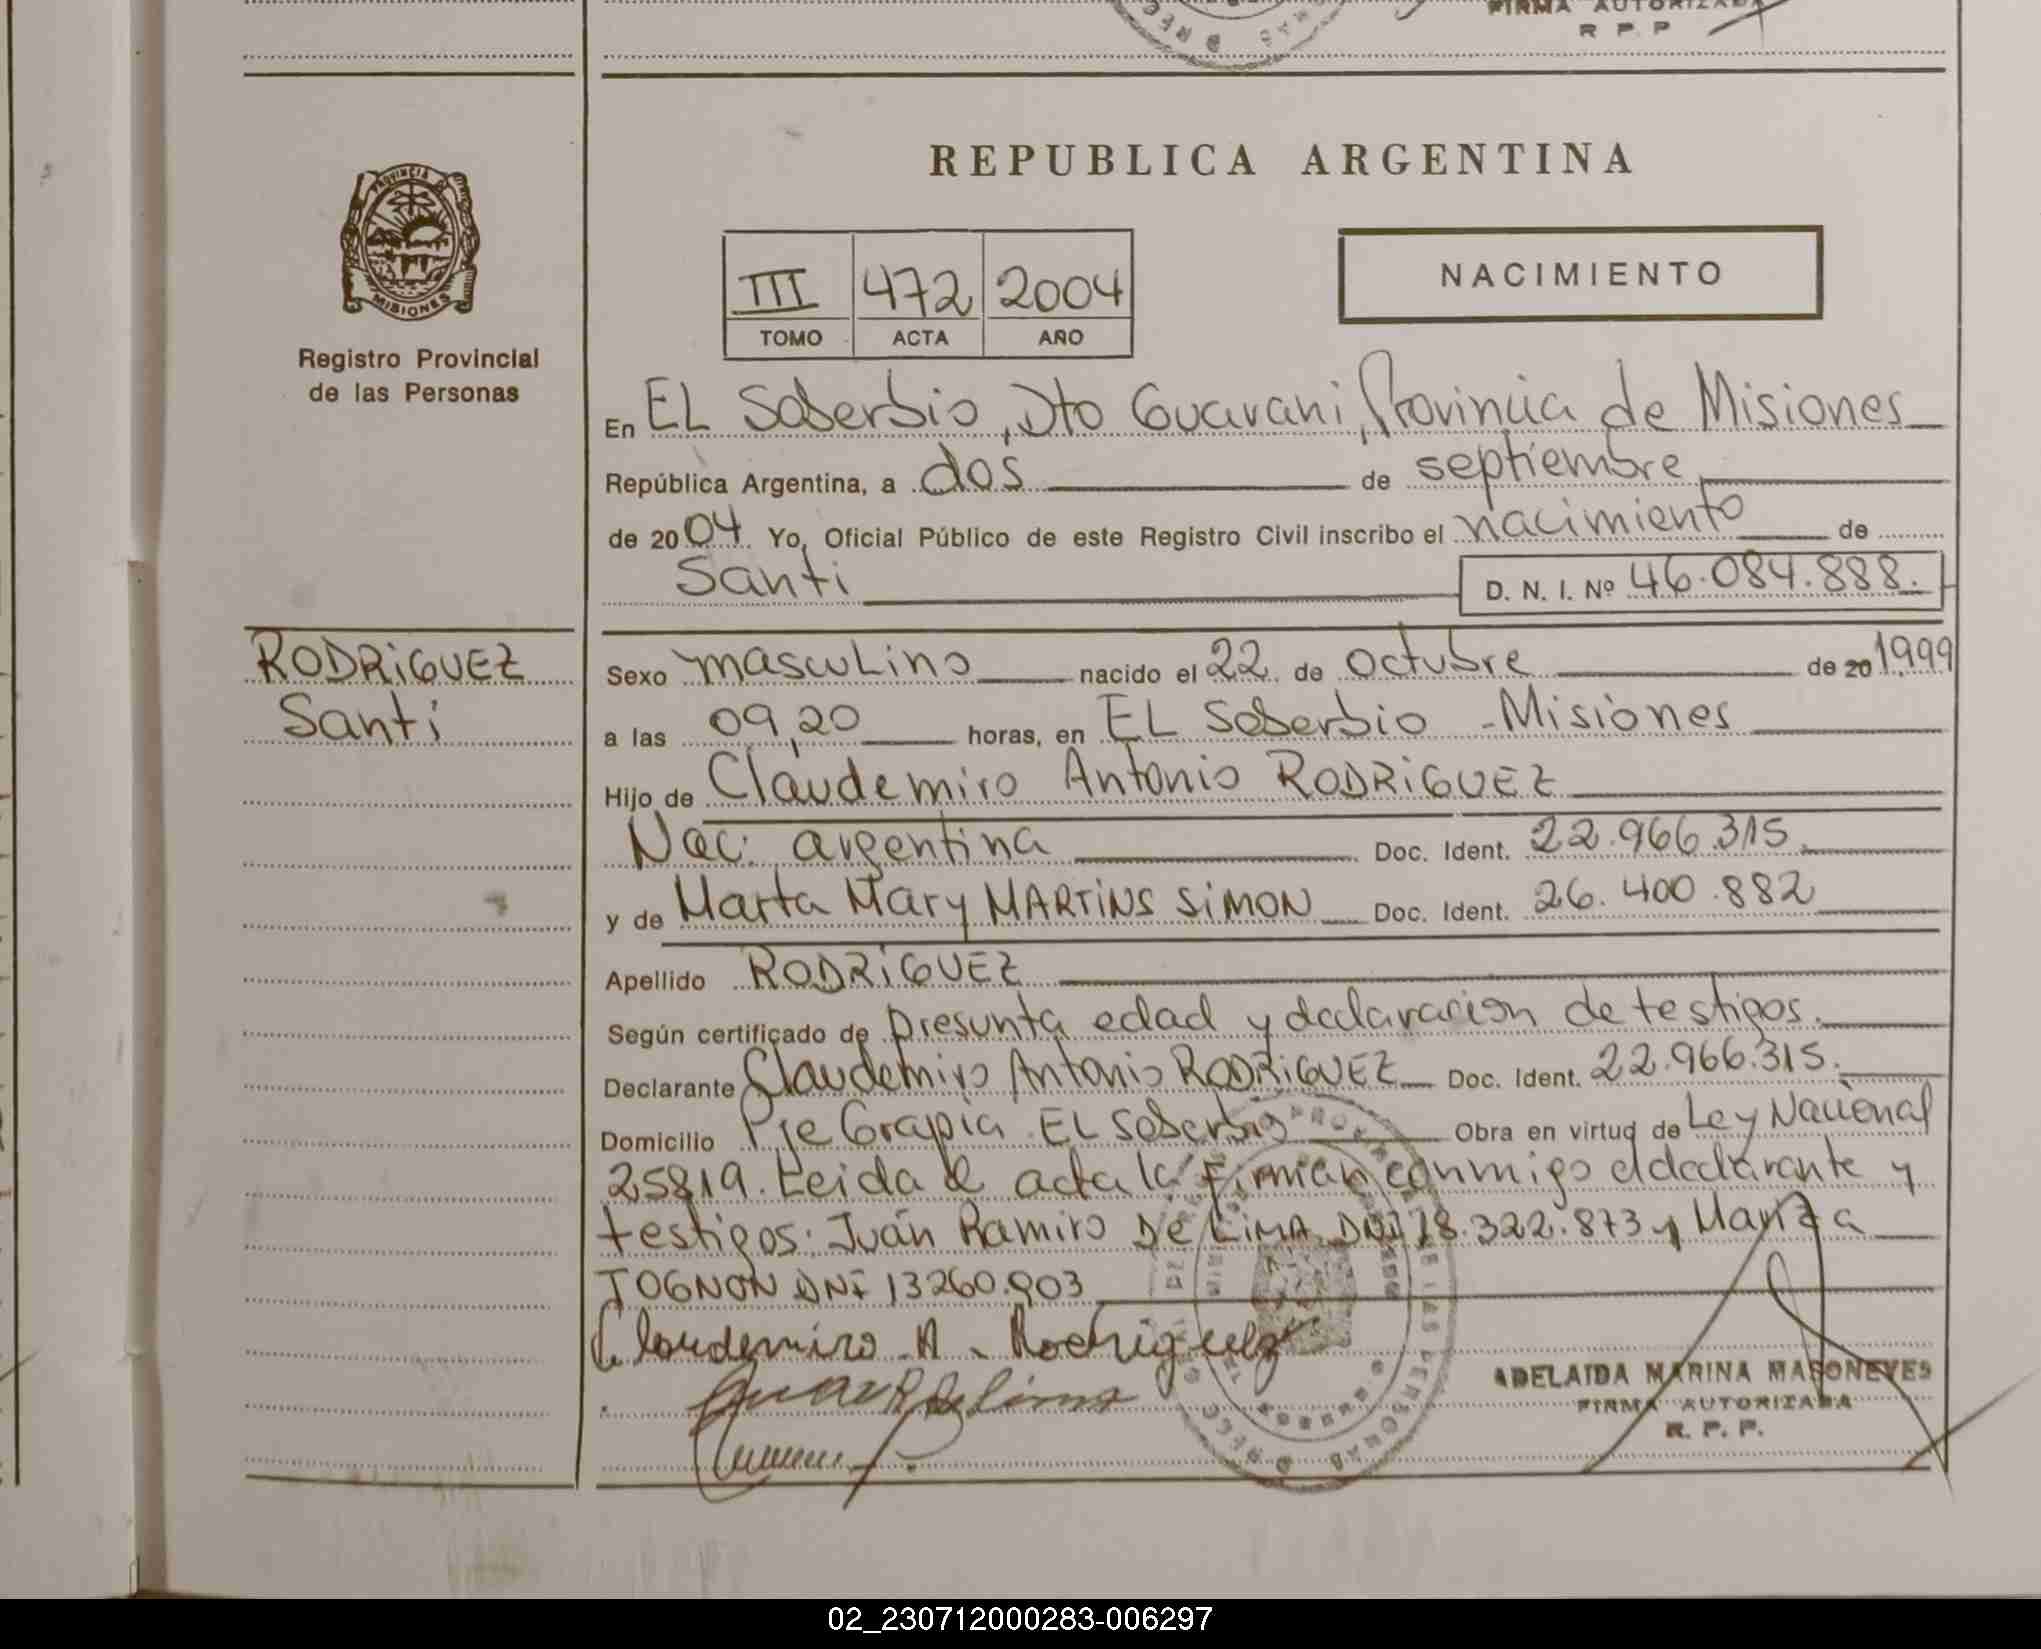 FIRMA AUTORIZADA
R P. P
REPUBLICA ARGENTINA
PROVINCIA D
MISIONES
Registro Provincial
de las Personas
III 472 2004
TOMO ACTA AÑO
NACIMIENTO
En EL Soberbio, Dto Guarani, Provincia de Misiones
República Argentina, a dos de septiembre
de 2004. Yo, Oficial Público de este Registro Civil inscribo el nacimiento de
Santi D. N. I. Nº 46.084.888.
RODRiGUEZ
Santi
Sexo masculino nacido el 22 de octubre de 20 1999
a las 09,20 horas, en EL Soberbio - Misiones
Hijo de Claudemiro Antonio RODRiGUEZ
Nac. argentina Doc. Ident. 22.966.315.
y de Marta Mary MARTiNS SiMON Doc. Ident. 26.400.882
Apellido RODRiGUEZ
Según certificado de presunta edad y declaracion de testigos.
Declarante Claudemiro Antonio RODRiGUEZ Doc. Ident. 22.966.315.
Domicilio Pje Grapia EL Soberbio Obra en virtud de Ley Nacional
25819. Leida el acta la firman conmigo el declarante y
testigos: Juán Ramiro De LiMA DNI 18.322.873 y
TOGNON DNi 13260.903
Claudemiro A. Rodriguez
ADELAIDA MARINA MASONEVES
FIRMA AUTORIZADA
R. P. P.
02_230712000283-006297